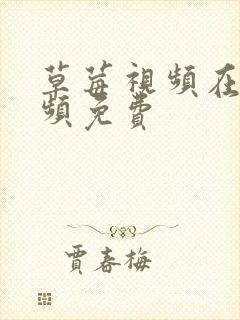 草莓視頻在
頻免費
賈春梅